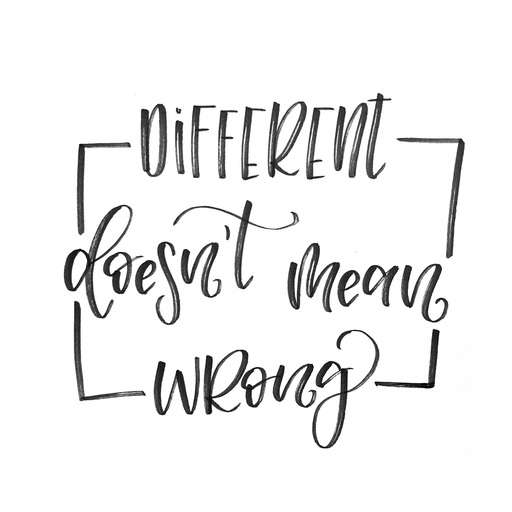 DiFFERENt
doesn't mean
WRong